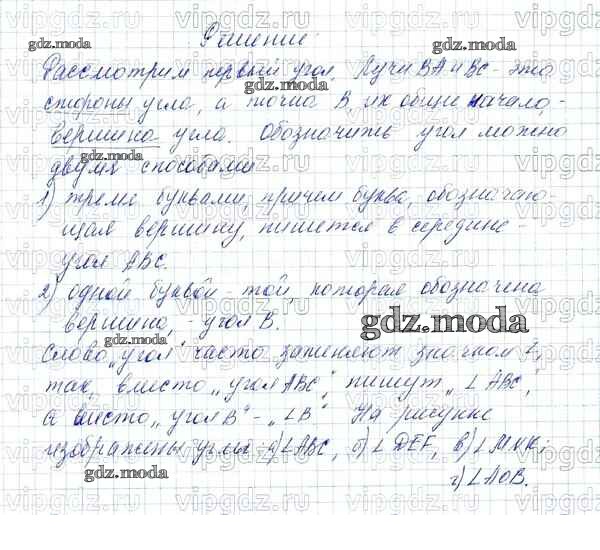 Решение
Рассмотрим первый угол. Лучи BA и BC - это
стороны угла, а точка B, их общее начало, -
вершина угла. Обозначить угол можно
двумя способами
1) тремя буквами, причем буква, обозначаю-
щая вершину, пишется в середине -
угол ABC.
2) одной буквой - той, которая обозначена
вершина, - угол B.
Слово „угол" часто заменяют значком ∠,
так, вместо „угол ABC" пишут „∠ABC",
а вместо „угол B" - „∠B" На рисунке
изображены углы: а) ∠ABC, б) ∠DEF, в) ∠MNK;
г) ∠AOB.
gdz.moda
gdz.moda
gdz.moda
gdz.moda
gdz.moda
gdz.moda
gdz.moda
gdz.moda
gdz.moda
vipgdz.ru